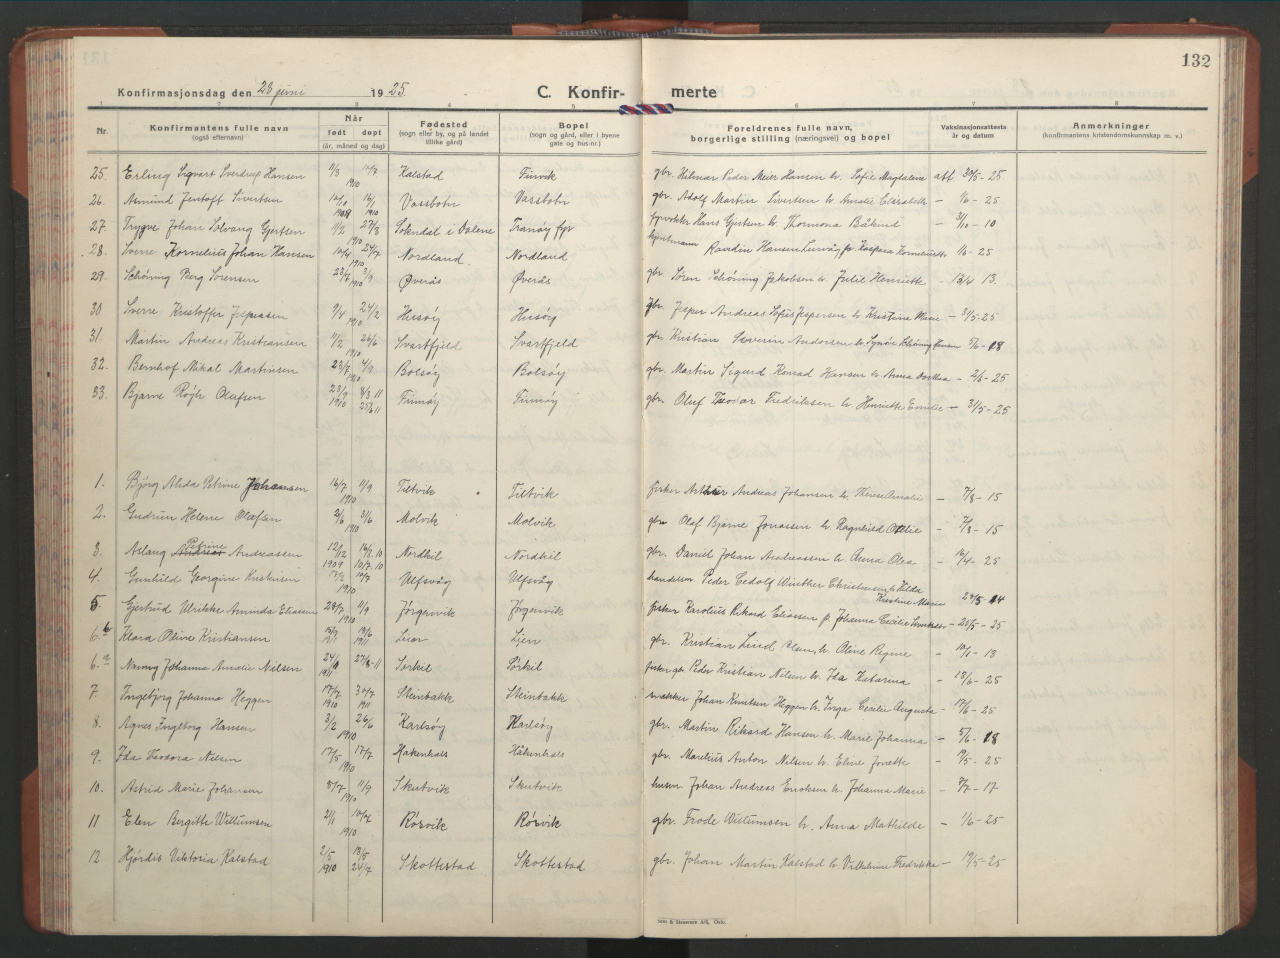 132
Konfirmasjonsdag den 28 juni 1925. C. Konfirmerte
1 2 3 4 5 6 7 8
Nr. Konfirmantens fulle navn (også efternavn) Når født døpt (år, måned og dag) Fødested (sogn eller by, og på landet tillike gård) Bopel (sogn og gård, eller i byene gate og hus-nr.) Foreldrenes fulle navn, borgerlige stilling (næringsvei) og bopel Vaksinasjonsattests år og datum Anmerkninger (konfirmantens kristendomskunnskap m. v.)
25. Erling Sigvart Sverdrup Hansen 11/3 1910 Kalstad Finvik gbr Hilmar Peder Meier Hansen h. Sofie Magdalene att 30/5-25
26. Asmund Jentoft Sivertsen Vassbotn Vassbotn gbr. Adolf Martin Sivertsen h. Amalie Elisabeth - 1/6-25
27. Trygve Johan Solvang Gjertsen 1/2 27/3 1910 Sokndal i Dalene Tranøy fyr fyrvokter Hans Gjertsen h. Thomona Båkind - 3/10-10
28. Sverre Kornelius Johan Hansen 10/4 24/7 1910 Nordland. Nordland Hansen 1/6-25
29. Schøning Berg Sørensen 23/7 3/9 1910 Øverås Øverås gbr. Søren Schöning Jakobsen h. Julie Henriette - 13/4 13.
30 Sverre Kristoffer Jespersen 9/4 24/2 1910 Husøy Husøy gbr. Jesper Andreas Sofus Jespersen h. Kristine Marie - 31/5-25
31. Martin Andreas Kristiansen 11/2 26/6 1910 Svartfjeld Svartfjeld gbr. Kristian Severin Andersen h. Synøv Schöning 5/6-18
32. Bernhof Mikal Martinsen 23/7 4/9 1910 Bolsøy Bolsøy gbr. Martin Sigurd Konrad Hansen h. Anna Dorthea - 2/6-25
33. Bjarne Røgh Olafsen 23/9 1910 8/3 11 25/6 11 Finnøy Finnøy gbr. Oluf Teodor Fredriksen h. Henriette Emilie - 31/5-25
1. Bjørg Alida Petrine Johansen 16/7 11/9 1910 Tiltvik Tiltvik fisker Arthur Andreas Johansen h. Therese Amalie - 7/8-15
2. Gudrun Helene Olafsen 2/6 3/6 1910 Molvik Molvik gbr. Olaf Bjarne Jonassen h. Ragnhild Otelie - 7/8-15
3. Aslaug Petrine Andreassen 12/12 1909 16/1.10 10/7.10 Nordkil Nordkil gbr. Daniel Johan Andreassen h. Anna Olea - 16/4-25
4. Gunhild Georgine Kristensen 17/2 10/7 1910 Ulfsvåg Ulfsvåg handelsm Peder Cedolf Winther Christensen h. Hilda Kristine Marie 24/5-14
5. Gjertrud Ulrikke Amanda Eliasen 28/7 11/9 1910 Jørgenvik Jørgenvik fisker Karolius Rikard Eliassen h. Johanna Cecilie - 25/5-25
6.b Klara Oline Kristiansen Lien Lien gbr. Kristian Lind Olsen h. Oline Regine - 10/1-13
6.a Nanny Johanna Amalie Nilsen 24/10 1911 27/8-11 Sørkil Sørkil fisker gbr. Peder Kristian Nilsen h. Ida Katarina - 18/6-25
7. Ingebjørg Johanna Heggen 17/7 1910 30/7 1911 Steinbakk Steinbakk snekker Johan Knutsen Heggen h. Inga Cecilie Augusta - 17/6-25
8. Agnes Ingeborg Hansen 3/2 26/6 1910 Karlsøy Karlsøy gbr. Martin Rikard Hansen h. Marie Johanna - 5/6-18
9. Ida Teodora Nilsen 17/5 17/7 1910 Hakenhals Håkenhals gbr. Marelius Anton Nilsen h. Eline Jonette - 19/5-25
10. Astrid Marie Johansen 5/7 11/9 1910 Skutvik Skutvik husm Johan Andreas Eriksen h. Johanna Marie - 7/7-17
11 Elen Bergitte Willumsen 2/1 10/7 1910 Rösvik Rösvik gbr. Frode Willumsen h. Anna Mathilde - 1/6-25
12 Hjørdis Viktoria Kalstad 2/5 1910 13/5 24/7 Skottestad Skottestad gbr. Johan Martin Kalstad h. Vilhelmine Fredrikke - 19/5-25